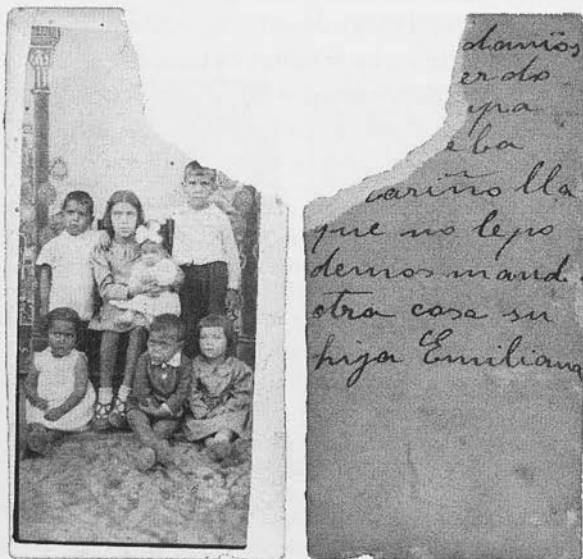 damos
erdo
apa
eba
cariño lla
que no lepo
demos mand
otra cosa su
hija Emiliana